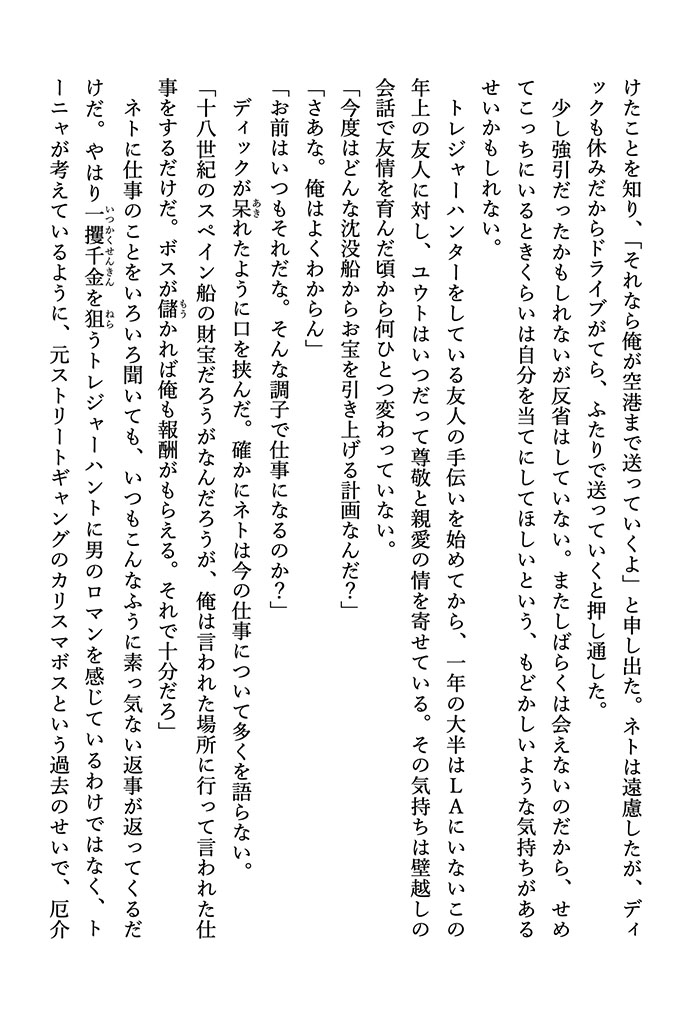 けたことを知り、「それなら俺が空港まで送っていくよ」と申し出た。ネトは遠慮したが、ディ
ックも休みだからドライブがてら、ふたりで送っていくと押し通した。
　少し強引だったかもしれないが反省はしていない。またしばらくは会えないのだから、せめ
てこっちにいるときくらいは自分を当てにしてほしいという、もどかしいような気持ちがある
せいかもしれない。
　トレジャーハンターをしている友人の手伝いを始めてから、一年の大半はＬＡにいないこの
年上の友人に対し、ユウトはいつだって尊敬と親愛の情を寄せている。その気持ちは壁越しの
会話で友情を育んだ頃から何ひとつ変わっていない。
「今度はどんな沈没船からお宝を引き上げる計画なんだ？」
「さあな。俺はよくわからん」
「お前はいつもそれだな。そんな調子で仕事になるのか？」
　ディックが呆あきれたように口を挟んだ。確かにネトは今の仕事について多くを語らない。
「十八世紀のスペイン船の財宝だろうがなんだろうが、俺は言われた場所に行って言われた仕
事をするだけだ。ボスが儲もうかれば俺も報酬がもらえる。それで十分だろ」
　ネトに仕事のことをいろいろ聞いても、いつもこんなふうに素っ気ない返事が返ってくるだ
けだ。やはり一攫千金いっかくせんきんを狙ねらうトレジャーハントに男のロマンを感じているわけではなく、ト
ーニャが考えているように、元ストリートギャングのカリスマボスという過去のせいで、厄介